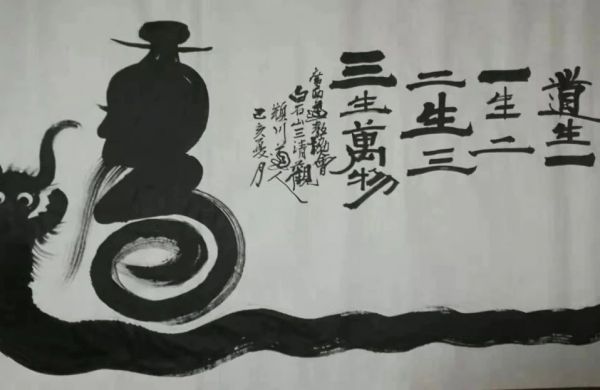 道生一
一生二
二生三
三生萬物
广西道教協會
白石山三清觀
潁川道人
己亥夏月